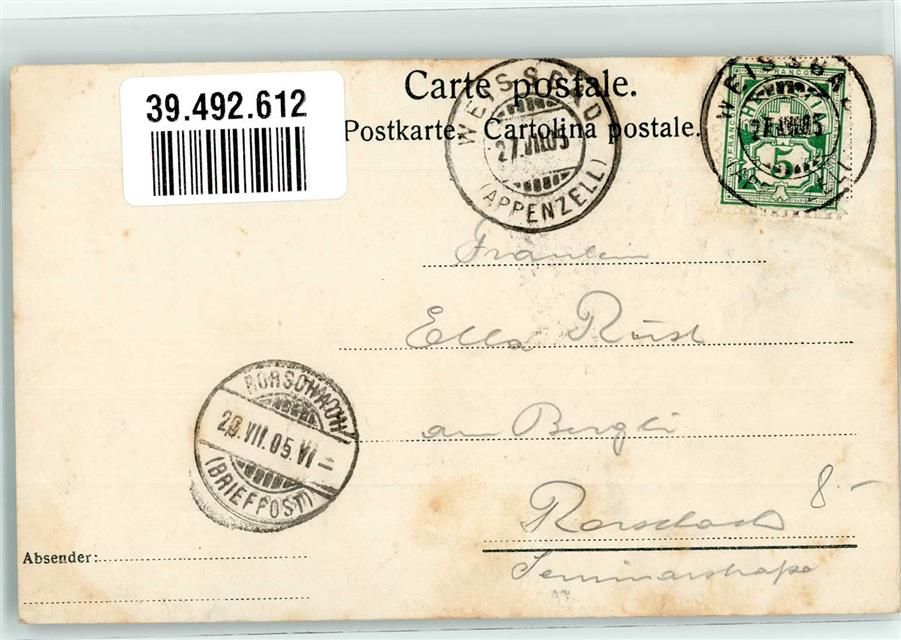 39.492.612
Carte postale.
Postkarte. Cartolina postale.
WEISSBAD
27.VII.05
(APPENZELL)
WEISSBAD
FRANCO
27.VII.05
5
Fräulein
Ella Rüst
am Bergli
RORSCHACH
28.VII.05.VI–
(BRIEFPOST)
8.-
Rorschach
Absender:
Seminarstraße